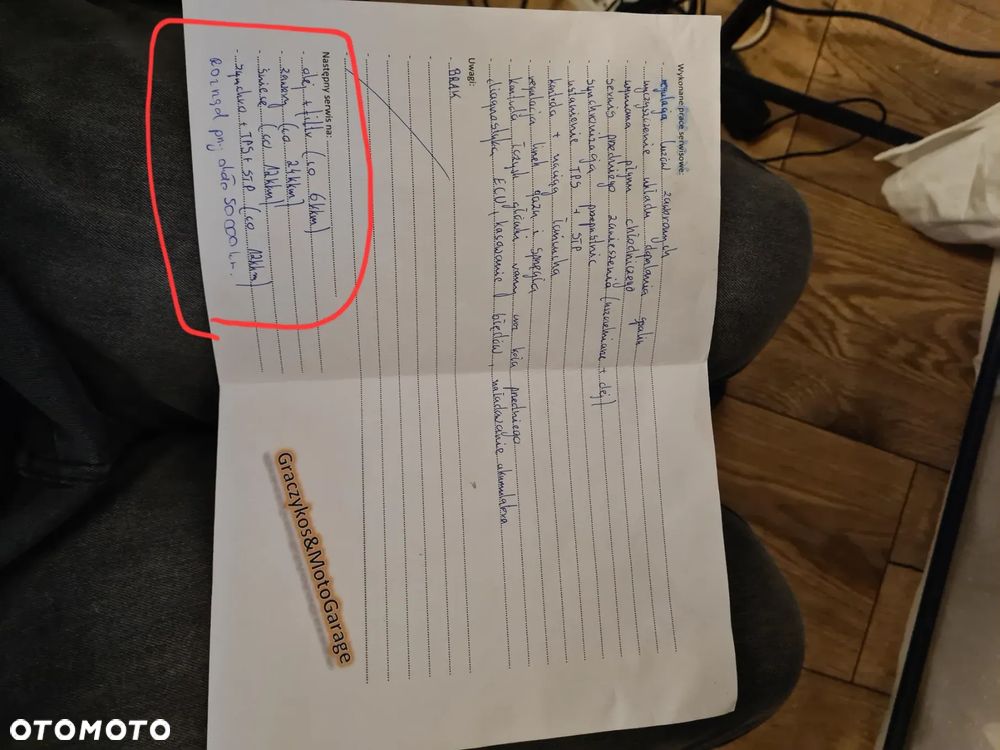 Wykonane prace serwisowe:
- regulacja luzów zaworowych
- wyczyszczenie układu dolotowego spalin
- wymiana płynu chłodniczego
- serwis przedniego zawieszenia (uszczelniacze + olej)
- synchronizacja przepustnic
- ustawienie TPS + STP
- kontrola + naciąg łańcucha
- regulacja linek gazu i sprzęgła
- kontrola łożysk główki ramy oraz koła przedniego
- diagnostyka ECU, kasowanie błędów, naładowanie akumulatora
Uwagi:
- BRAK
Następny serwis na:
- olej + filtr (co 6kkm)
- zawory (co 24kkm)
- świece (co 12kkm)
- synchro + TPS + STP (co 12kkm)
Rozrząd przy około 50000 km.
Graczykos&MotoGarage
OTOMOTO